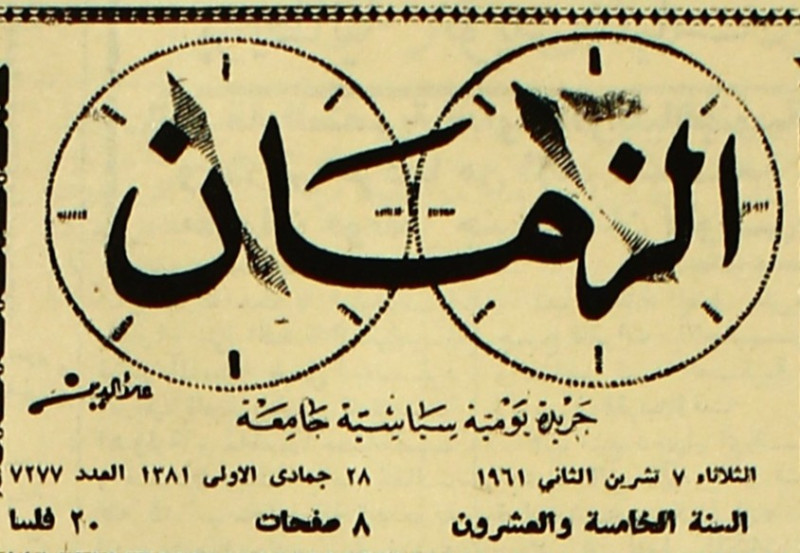 الزمان
علاء الدين
جريدة يومية سياسية جامعة
الثلاثاء ٧ تشرين الثاني ١٩٦١ ٢٨ جمادى الاولى ١٣٨١ العدد ٧٢٧٧
السنة الخامسة والعشرون ٨ صفحات ٢٠ فلسا